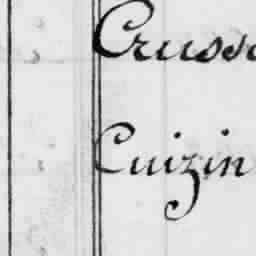 Crusso
Cuizin